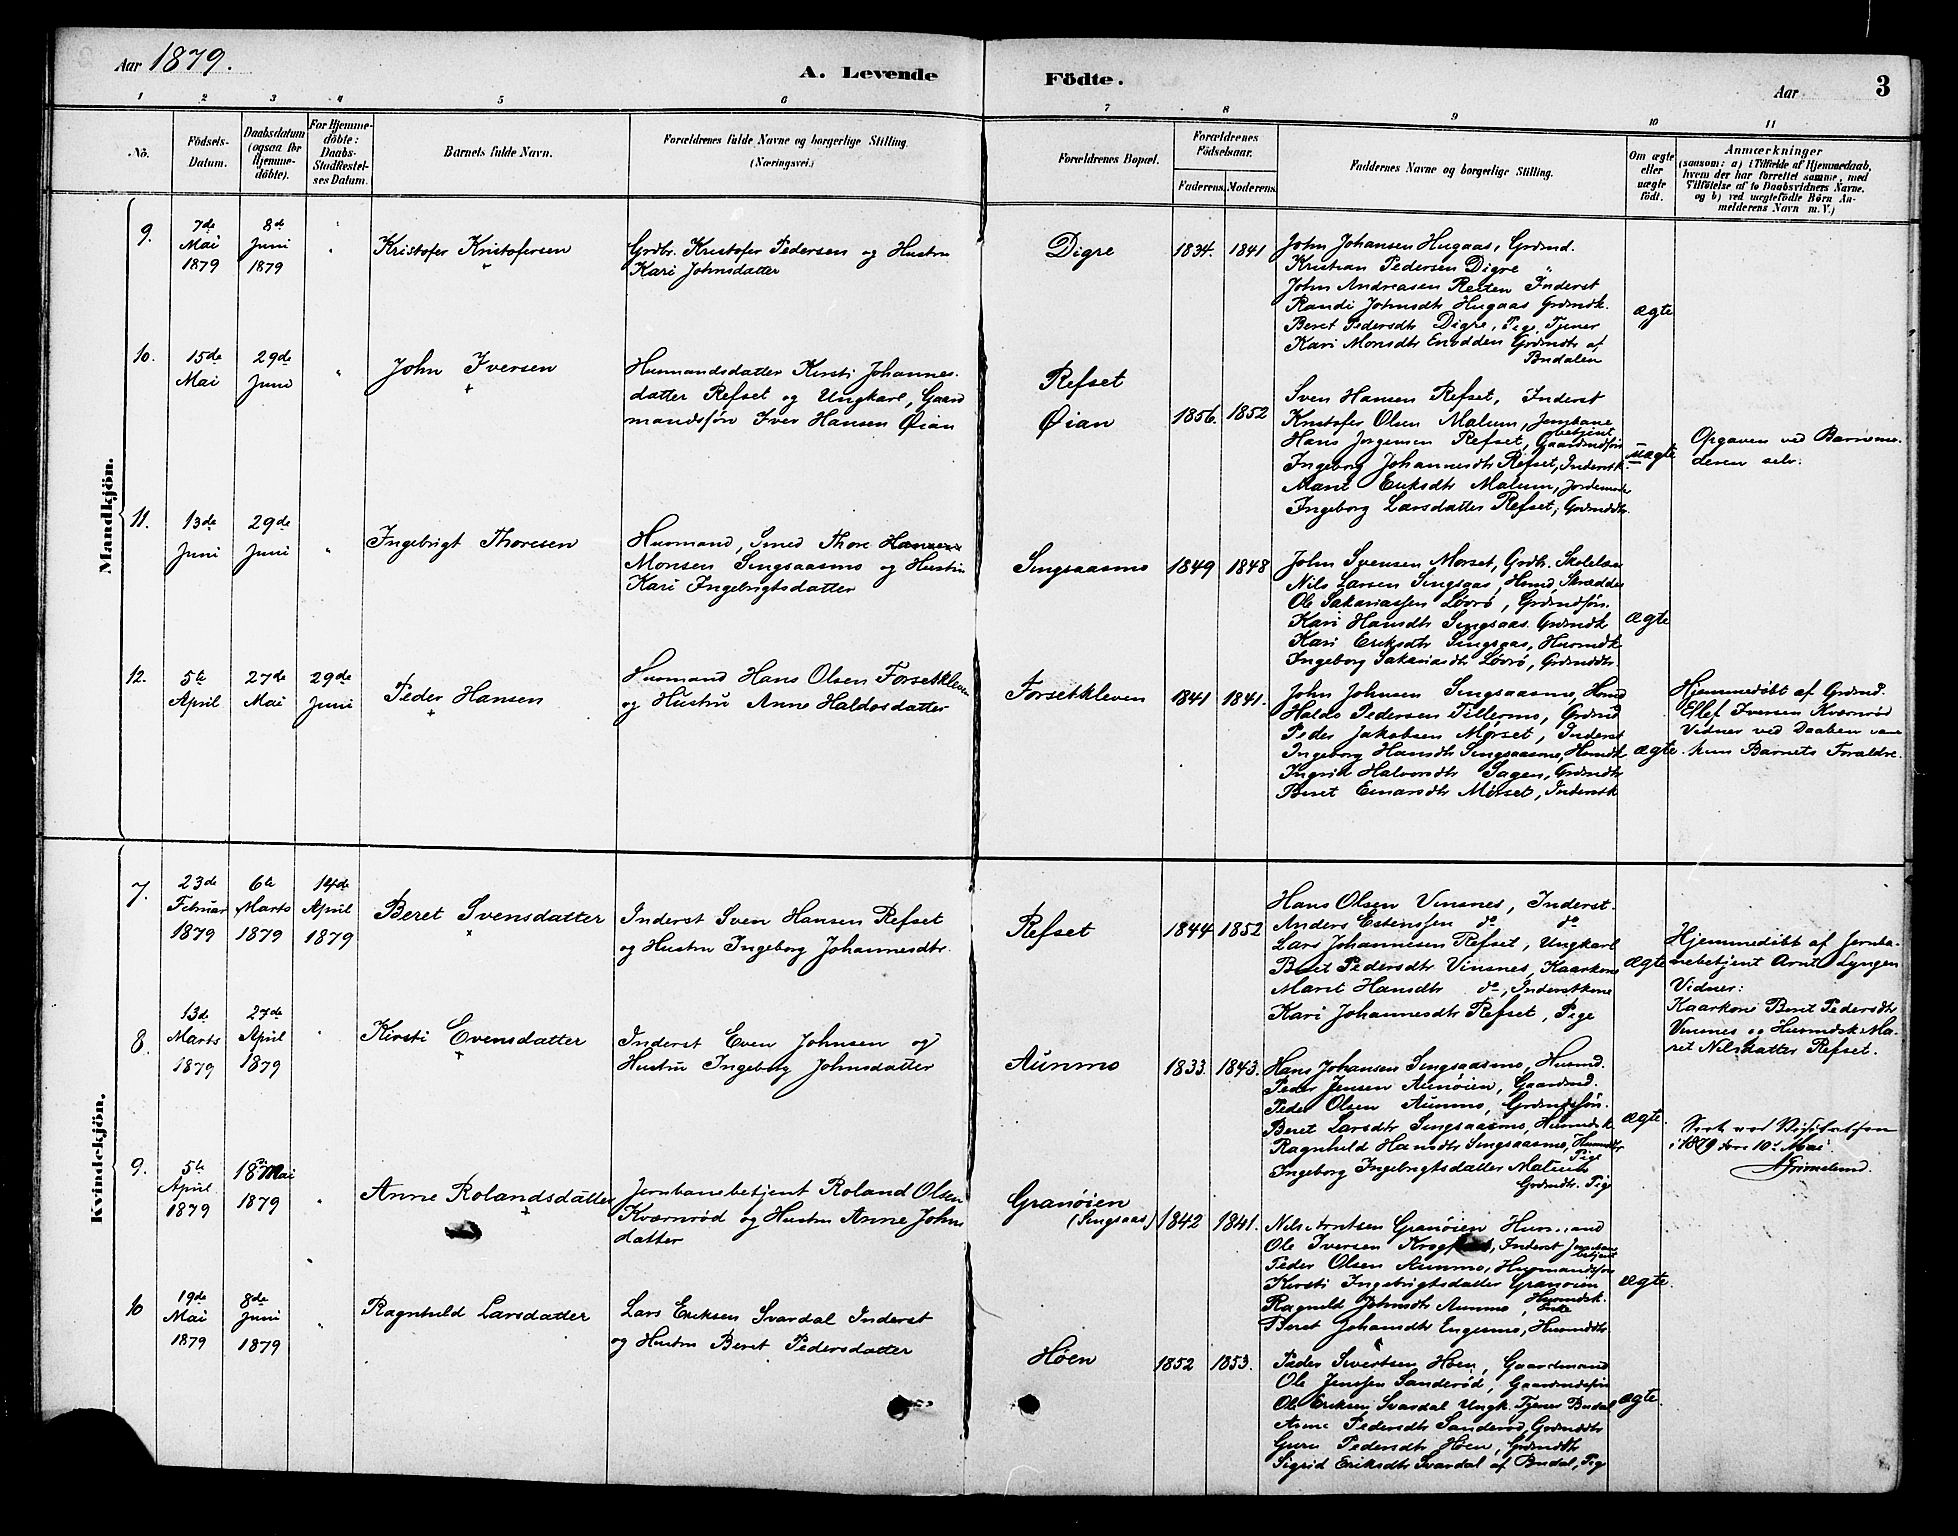 Aar 1879.
A. Levende Födte.
Aar
3
1 2 3 4 5 6 7 8 9 10 11
No.
Födsels-
Datum.
Daabsdatum
(ogsaa for
Hjemme-
döbte).
For Hjemme-
döbte:
Daabs-
Stadfæstel-
ses Datum.
Barnets fulde Navn.
Forældrenes fulde Navne og borgerlige Stilling.
(Næringsvei.)
Forældrenes Bopæl.
Forældrenes
Födselsaar.
Faderens. Moderens.
Faddernes Navne og borgerlige Stilling.
Om ægte
eller
uægte
födt.
Anmærkninger
(saasom: a) i Tilfælde af Hjemmedaab,
hvem der har forrettet samme, med
Tilföielse af to Daabsvidners Navne,
og b) ved uægtefödte Börn An-
melderens Navn m. V.)
Mandkjön.
9.
7de
Mai
1879
8de
Juni
1879
"
Kristofer Kristofersen
Grdbr. Kristofer Pedersen og Hustru
Kari Johnsdatter
Digre
1834. 1841
John Johansen Hugaas, Grdmd.
Kristian Pedersen Digre "
John Andreasen Reiten Inderst
Randi Johnsdtr Hugaas Grdmdk.
Beret Pedersdtr Digre, Pige, Tjener
Kari Monsdtr Enodden Grdmdtr af
Budalen
ægte
10.
15de
Mai
29de
Juni
"
John Iversen
Husmandsdatter Kirsti Johannes-
datter Refset og Ungkarl, Gaard
mandssøn Iver Hansen Øian
Refset
Øian
1856. 1852
Sven Hansen Refset, Inderst
Kristofer Olsen Malum, Jernbane
betjent
Hans Jørgensen Refset, Gaardmdsøn
Ingeborg Johannesdtr Refset, Inderstk.
Marit Eriksdtr Malum, Jordemoder
Ingeborg Larsdatter Refset, Grdmdtr.
uægte
Opgaven ved Barnemo-
deren selv.
11.
13de
Juni
29de
Juni
"
Ingebrigt Thoresen
Husmand, Smed Thore Hansen
Monsen Singsaasmo og Hustru
Kari Ingebrigtsdatter
Singsaasmo
1849 1848
John Svensen Morset, Grdbr. Skolelær
Nils Larsen Singsaas, Hsmd, Skrædder
Ole Sakariassen Løvrø, Grdmdsøn.
Kari Hansdtr Singsaas. Grdmdk
Kari Eriksdtr Singsaas, Husmdk
Ingeborg Sakariasdtr Løvrø, Grdmdtr
ægte
12.
5te
April
27de
Mai
29de
Juni
Peder Hansen
Husmand Hans Olsen Forsetkleven
og Hustru Anne Haldosdatter
Forsetkleven
1841 1841.
John Johnsen Singsaasmo, Hsmd
Haldo Pedersen Tillermo, Grdmd
Peder Jakobsen Morset, Inderst
Ingeborg Hansdtr Singsaasmo, Hsmdk
Ingrid Halvorsdtr Sagen, Grdmdtr
Beret Einarsdtr Morset, Inderstk
ægte
Hjemmedøbt af Grdmd.
Elef Iversen Kværnrød
Vidner ved Daaben vare
kun Barnets Forældre.
Kvindekjön.
7.
23de
Februar
1879
6te
Marts
1879
14de
April
1879
Beret Svensdatter
Inderst Sven Hansen Refset
og Hustru Ingeborg Johannesdtr.
Refset
1844 1852
Hans Olsen Vinsnes, Inderst.
Anders Estensen do do
Lars Johannesen Refset, Ungkarl
Beret Pedersdtr Vinsnes, Kaarkone
Marit Hansdtr do, Inderstkone
Kari Johannesdtr Refset, Pige
ægte
Hjemmedøbt af Jernba-
nebetjent Arnt Lyngen
Vidner:
Kaarkone Beret Pedersdtr
Vinsnes og Husmdsk. Ma-
ret Nilsdatter Refset.
8.
13de
Marts
1879
27de
April
1879
"
Kirsti Evensdatter
Inderst Even Johnsen og
Hustru Ingeborg Johnsdatter
Aunmo
1833. 1843.
Hans Johansen Singsaasmo, Husmd.
Peder Jensen Aunøien, Gaardmd.
Peder Olsen Aunmo, Grdmdsøn.
Beret Larsdtr Singsaasmo, Husmdsk
Ragnhild Hansdtr Singsaasmo, Husmdtr
Pige
Ingeborg Ingebrigtsdatter Malum
Grdmdtr. Pige
ægte
Seet ved Visitatsen
i 1879 den 10de Mai
Grimelund.
9.
5te
April
1879
18de Mai
1879
"
Anne Rolandsdatter
Jernbanebetjent Roland Olsen
Kværnrød og Hustru Anne Johns
datter
Granøien
(Singsaas)
1842 1841.
Nils Arntsen Granøien Husmand
Ole Iversen Inderst Jernbane
betjent
Peder Olsen Aunmo, Husmandssøn
Kirsti Ingebrigtsdatter Granøien
Husmdsk.
Ragnild Johnsdtr Aunmo, Enke
Beret Johansdtr Engesmo, Husmdtr
ægte
10
19de
Mai
1879
8de
Juni
1879
"
Ragnhild Larsdatter
Lars Eriksen Svardal Inderst
og Hustru Beret Pedersdatter
Høen
1852 1853.
Peder Sivertsen Høen, Gaardmand
Ole Jenssen Sanderød, Gaardmdsøn
Ole Eriksen Svardal Ungk. Tjener Budal
Anne Pedersdtr Sanderød, Grdmdtr
Guru Pedersdtr Høen, Grdmdtr
Sigrid Eriksdtr Svardal af Budal, Pig
ægte.